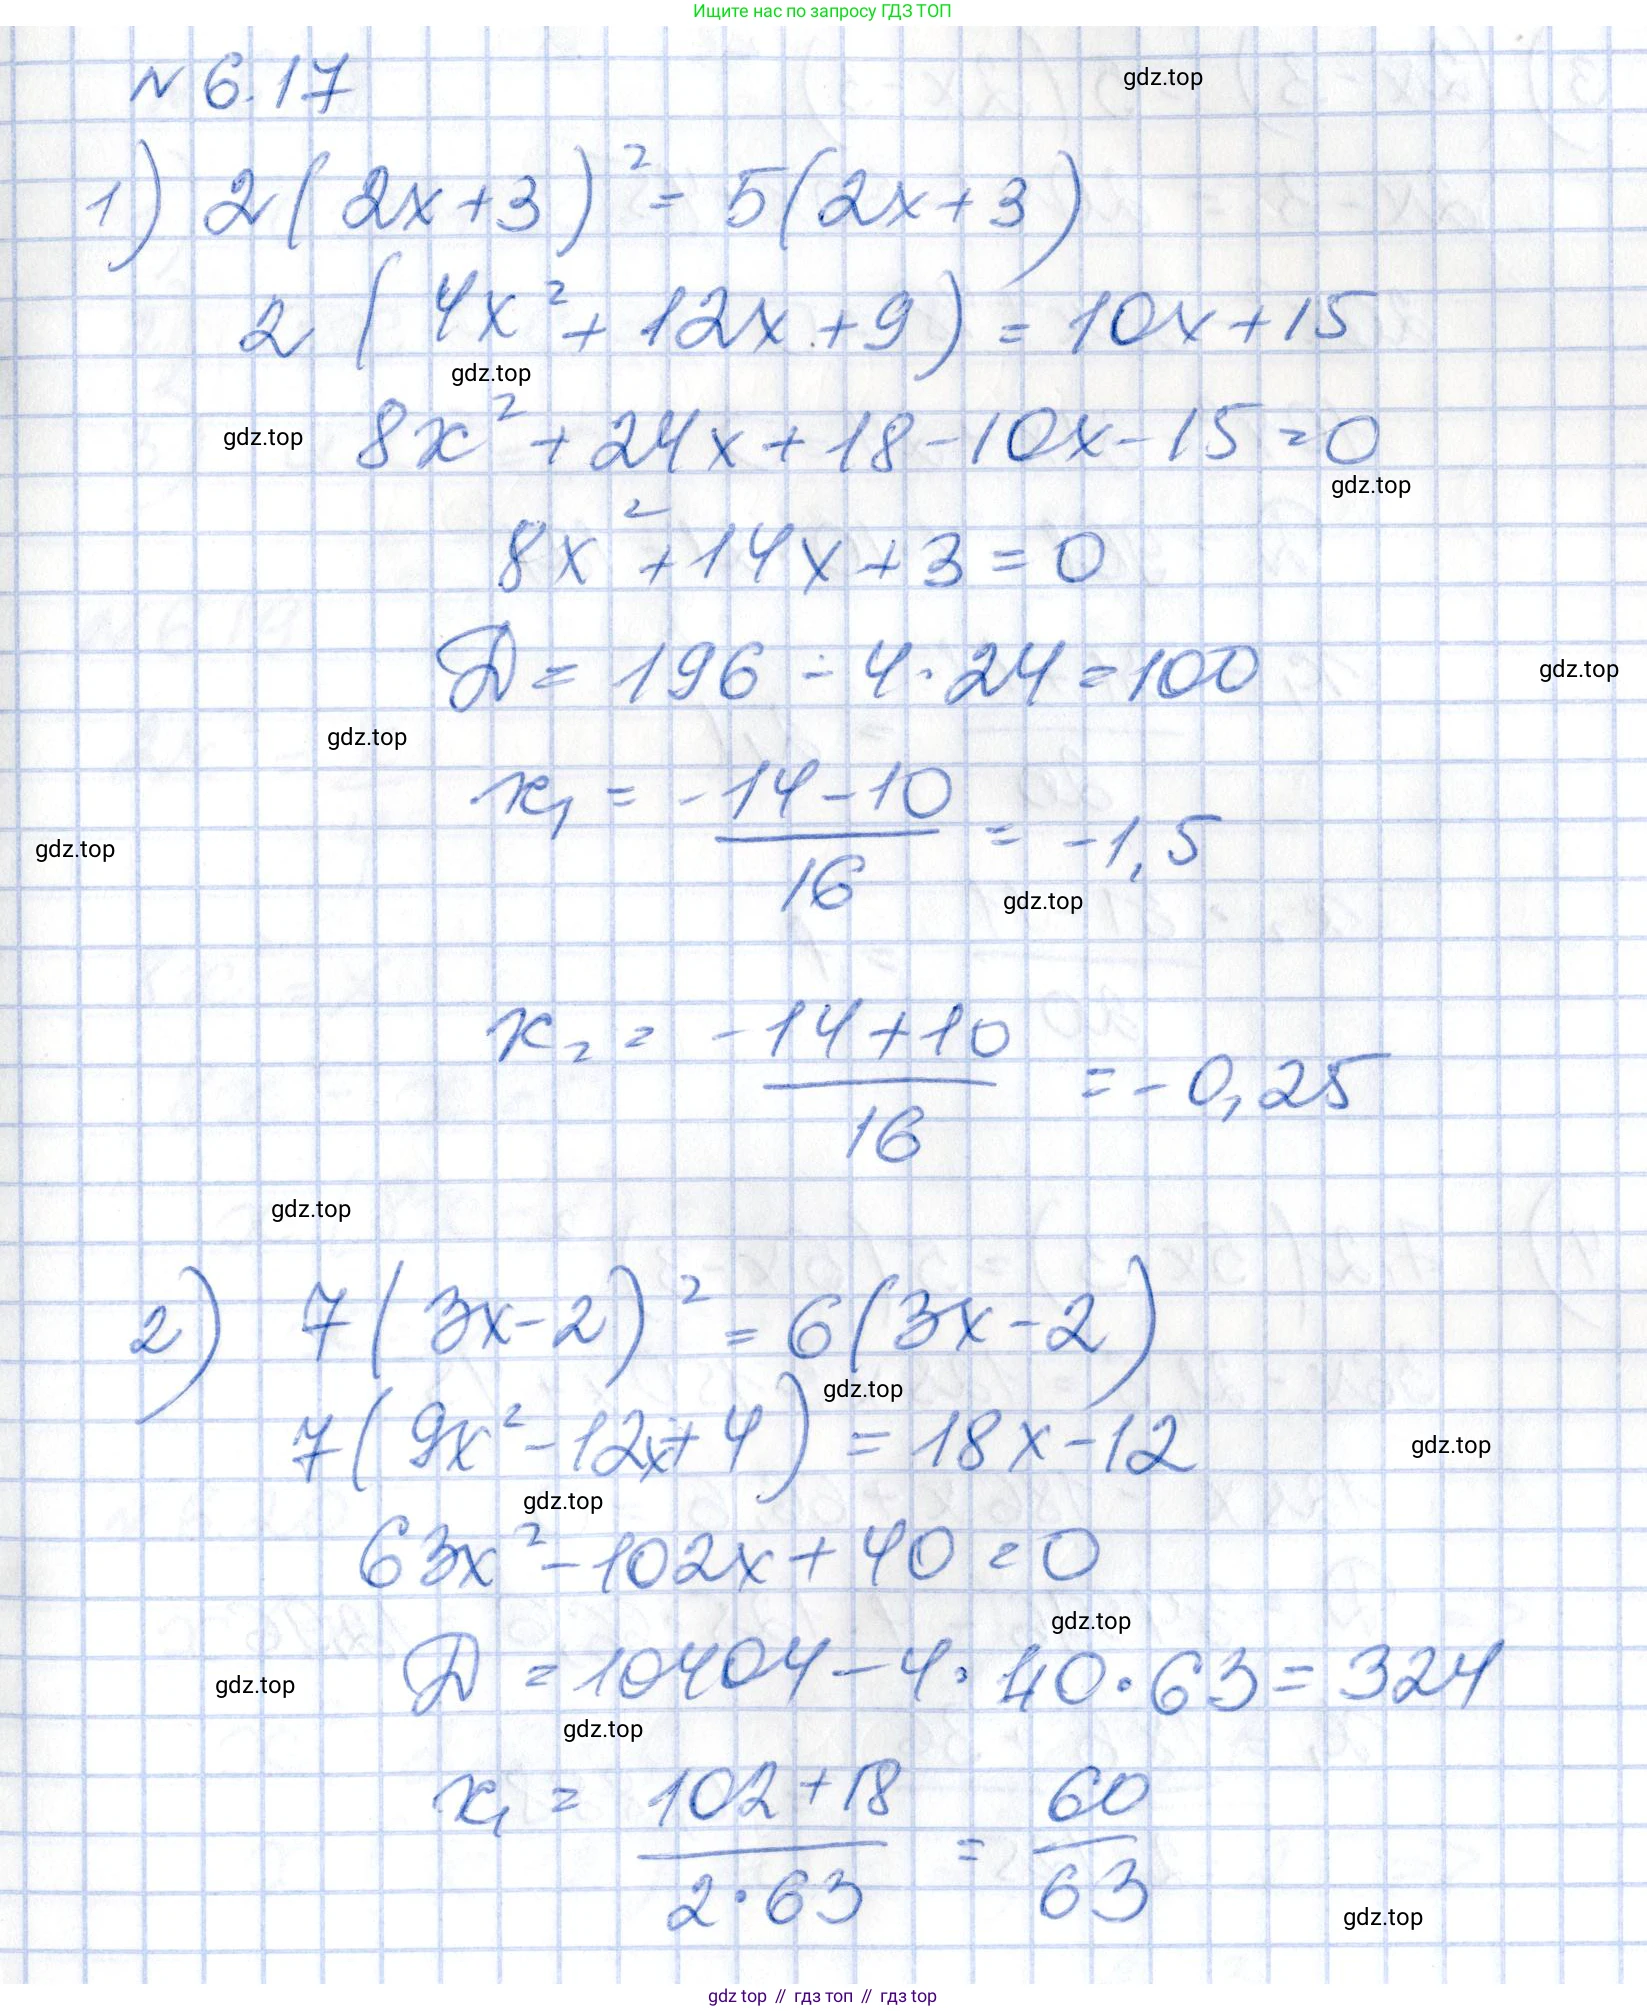 Ищите нас по запросу ГДЗ ТОП
№ 6.17
gdz.top
1) 2(2x+3)² = 5(2x+3)
2(4x²+12x+9) = 10x+15
gdz.top
gdz.top
8x²+24x+18-10x-15=0
gdz.top
8x²+14x+3=0
D = 196 - 4·24 = 100
gdz.top
gdz.top
x₁ = (-14-10)/16 = -1,5
gdz.top
gdz.top
x₂ = (-14+10)/16 = -0,25
gdz.top
2) 7(3x-2)² = 6(3x-2)
gdz.top
7(9x²-12x+4) = 18x-12
gdz.top
gdz.top
63x²-102x+40=0
gdz.top
D = 10404-4·40·63=324
gdz.top
gdz.top
x₁ = (102+18)/(2·63) = 60/63
gdz.top
gdz top // гдз топ // гдз top